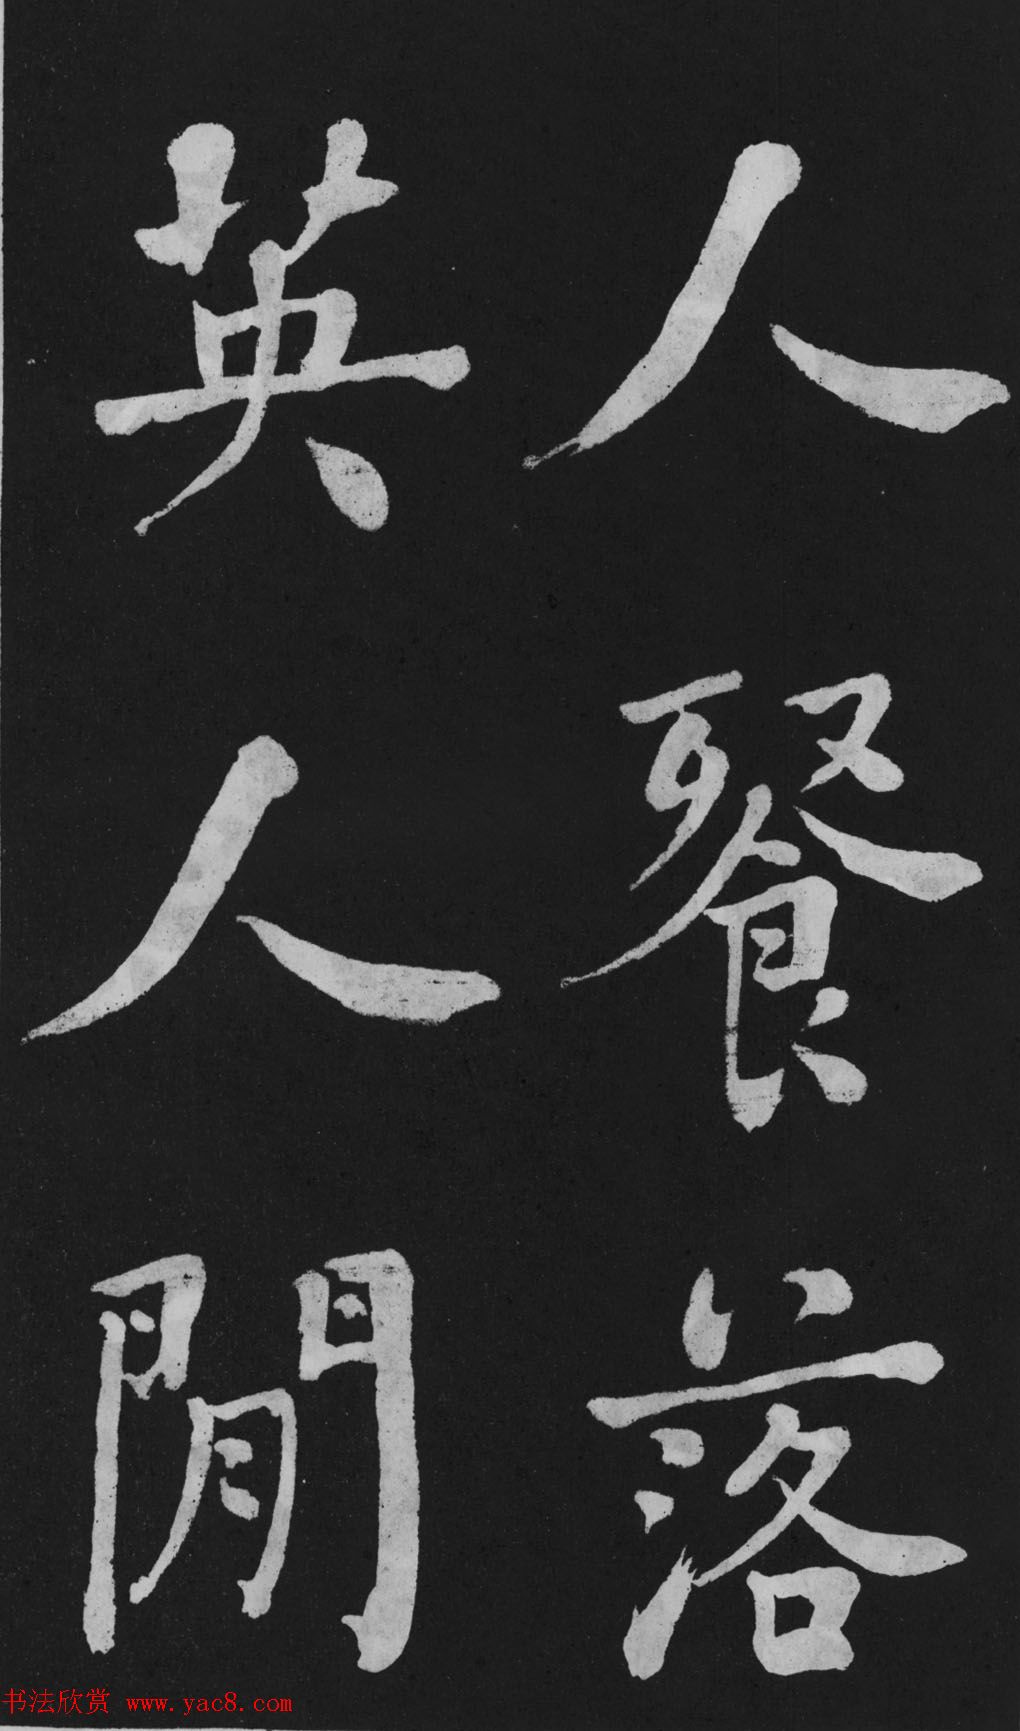 人餐落
英人閒
书法欣赏 www.yac8.com